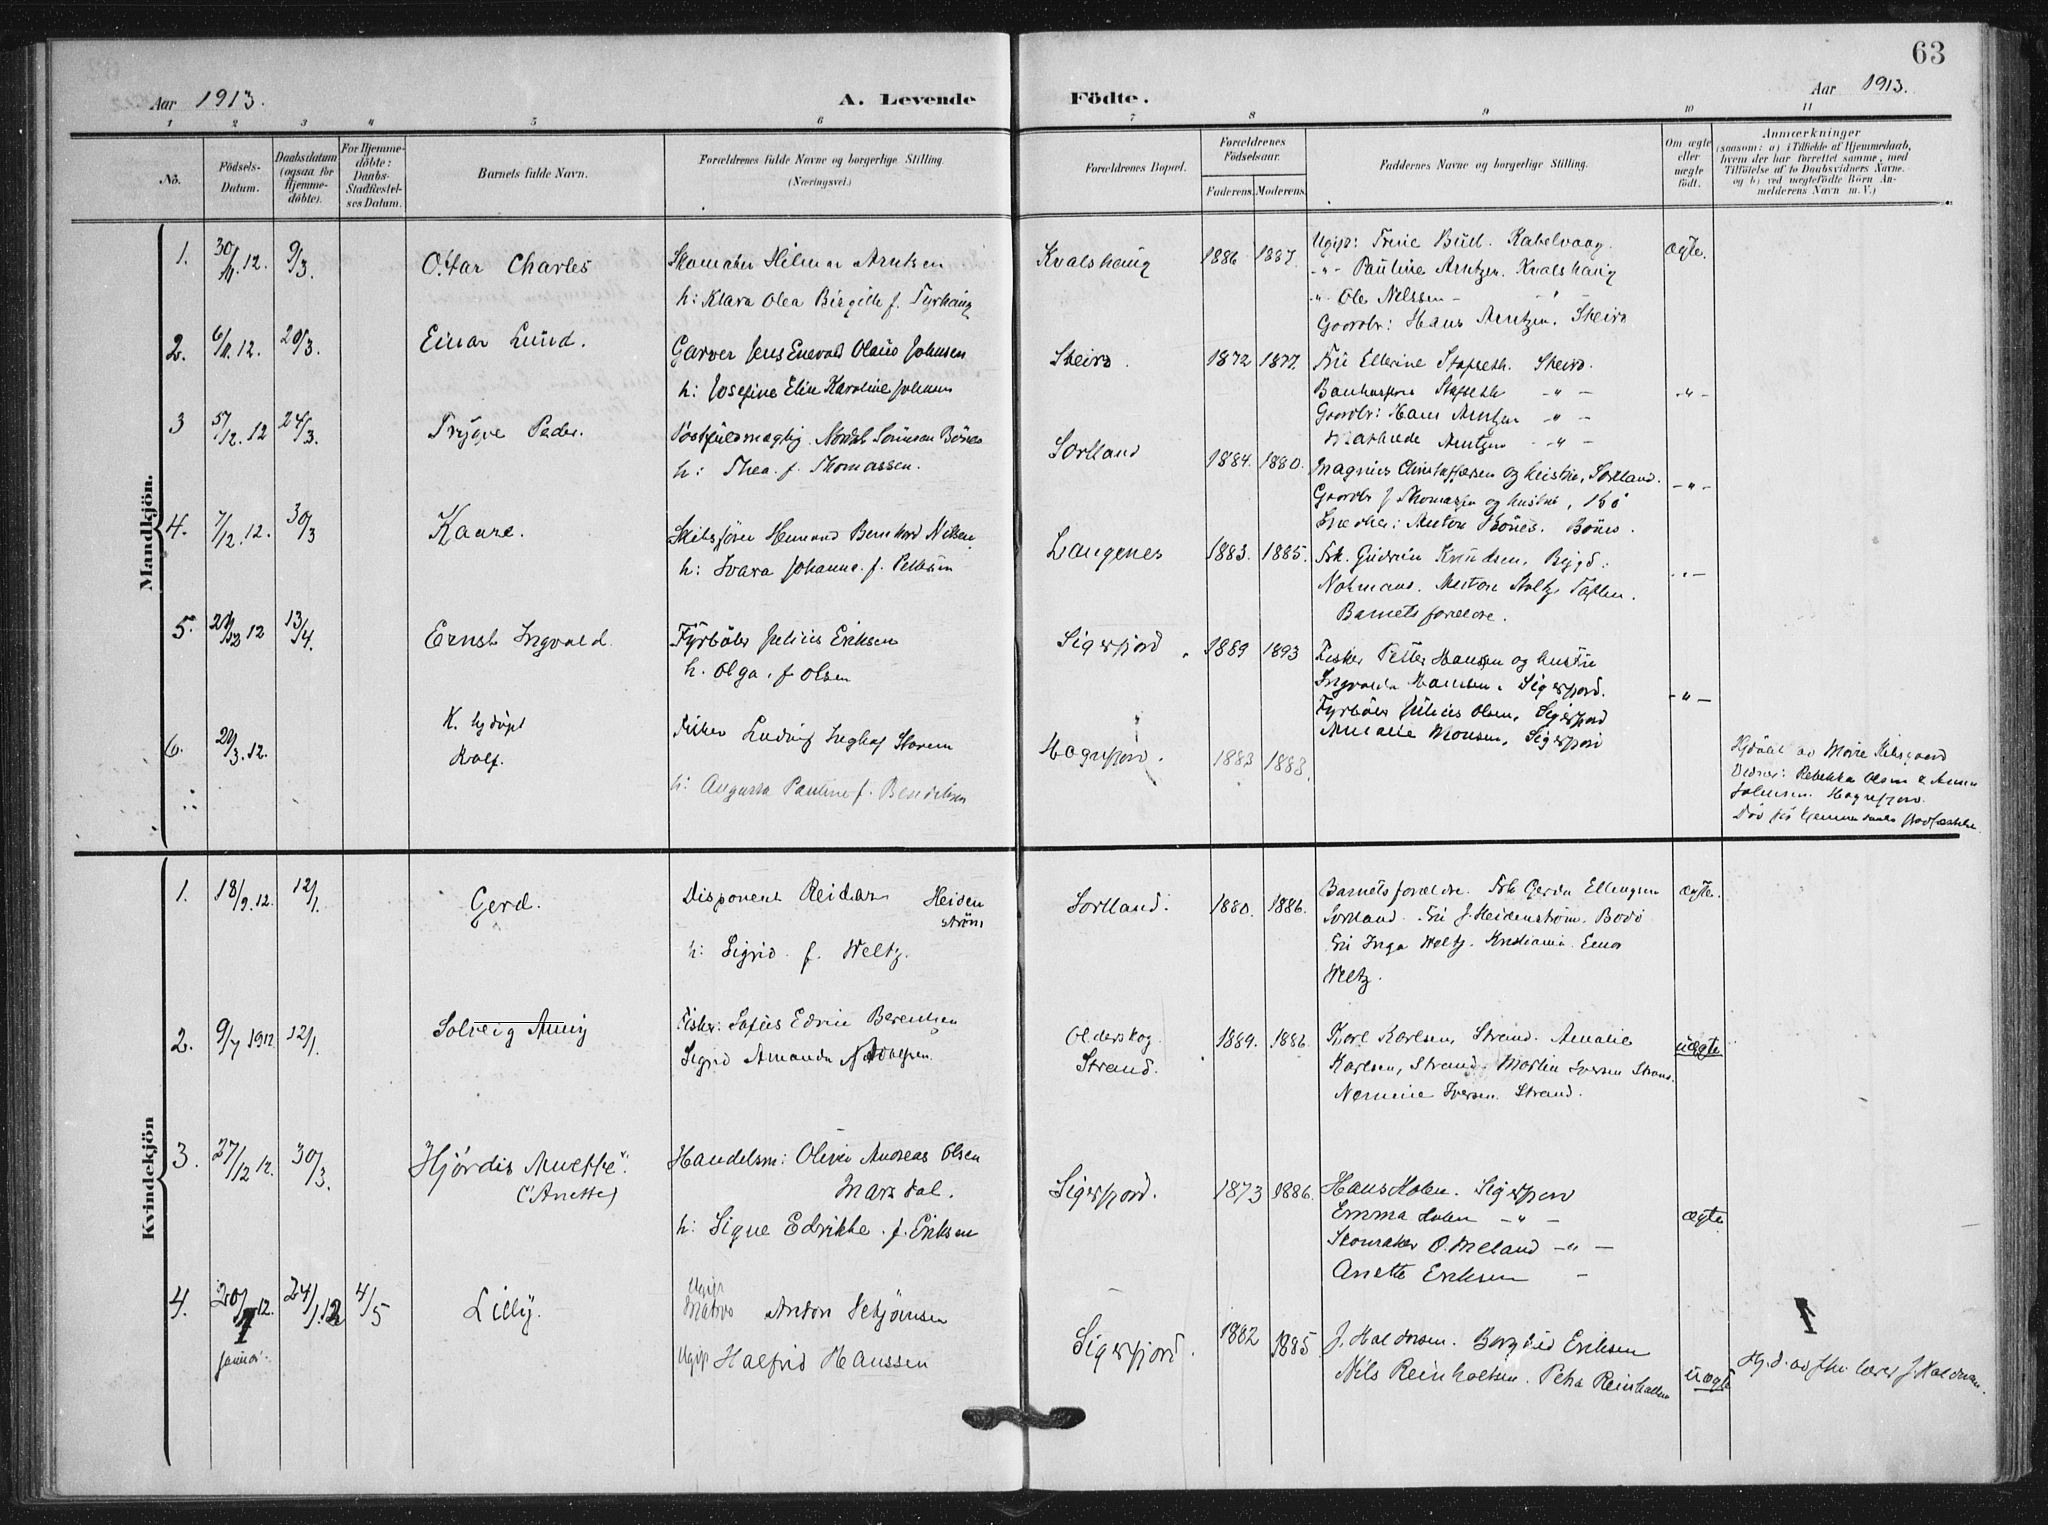 63
Aar 1913.
A. Levende Födte.
Aar 1913.
1 2 3 4 5 6 7 8 9 10 11
No.
Födsels-
Datum.
Daabsdatum
(ogsaa for
Hjemme-
döbte).
For Hjemme-
döbte:
Daabs-
Stadfæstel-
ses Datum.
Barnets fulde Navn.
Forældrenes fulde Navne og borgerlige Stilling.
(Næringsvei.)
Forældrenes Bopæl.
Forældrenes
Födselsaar.
Faderens. Moderens.
Faddernes Navne og borgerlige Stilling.
Om ægte
eller
uægte
födt.
Anmærkninger
(saasom: a) i Tilfælde af Hjemmedaab,
hvem der har forrettet samme, med
Tilföielse af to Daabsvidners Navne.
og b) ved uægtefödte Börn An-
melderens Navn m. V.)
Mandkjön.
1. 30/11.12. 9/3. Ottar Charles
Skomaker Hilmar Arntsen
h: Klara Olea Birgitte f. Fyrhaug
Kvalshaug 1886 1887.
Ugift: Trine Bull. Kabelvaag
-"- Pauline Arntzen. Kvalshaug
-"- Ole Nilssen -
Gaardbr: Hans Arntzen. Skeiro
ægte.
2. 6/11.12. 20/3. Einar Lund.
Garver Jens Enevold Olaus Johnsen
h: Josefine Elin Karoline Johnsen
Skeiro. 1872 1877.
Fru Ellerine Stafseth. Skeiro.
Stafseth -"-
Gaardbr: Hans Arntzen -"-
Mathilde Arntzen -"-
-"-
3 5/12.12 24/3. Trygve Peder.
Postfuldmægtig. Bönes
h: Thea. f. Thomassen.
Sortland 1884. 1880.
Magnus Christoffersen og hustru, Sortland.
Gaardbr J Thomassen og hustru,
Snedker: Anton Bönes. Bönes.
-"-
4. 7/12.12. 30/3 Kaare.
Skibsförer Bernhard Nilsen
h: Svara Johanne. f. Pettersen
Langenes 1883. 1885.
Frk. Gudrun Knudsen, Bygd:
Barnets forældre.
-"-
5. 12 13/4. Ernst Ingvald.
Fyrböter Julius Eriksen
h. Olga. f Olsen
Sigerfjord 1889 1893
Fisker Petter Hansen og hustru
Ingvalda Hansen. Sigerfjord.
Fyrböter Julius Olsen, Sigerfjord
Amalie Monsen, Sigerfjord
-"-
6. 29/3.12. K. hjdöpt
Rolf.
Fisker Ludvig
h: Augusta Pauline f. Bendiksen
Hognfjord. 1883 1888.
Hjdöbt av
Vidner: Rebekka Olsen & Anna
Johnsen. Hognfjord.
Död för
Kvindekjön
1. 18/9.12. 12/1. Gerd.
Disponent Reidar Heiden
ström
h: Sigrid f. Weltz.
Sortland. 1880. 1886.
Barnets forældre. Frk Gerda Ellingsen
Sortland. Fru J. Heidenström. Bodö
Fru Inga Weltz. Kristiania. Einar
Weltz.
ægte.
2. 9/7 1912 12/1. Solveig Anny
Fisker: Sofus Edvin Berentsen
Sigrid Amanda Adolfsen.
Olderskog
Strand. 1889. 1886
Karl Karlsen, Strand. Amalie
Karlsen, Strand. Martin Iversen Strand.
Iversen. Strand.
uægte
3. 27/12 12. 30/3. Hjördis Anette.
("Anette)
Handelsm: Oliver Andreas Olsen
Marsdal.
h: Signe Edrikke. f. Eriksen
Sigerfjord. 1873 1886.
Hans Holen. Sigerfjord
Emma Holen -"-
Skomaker O. Meland -"-
Anette Eriksen -
ægte
4. 20/1 12. 24/1.12 4/5 Lilly.
januar.
Ugift
Matros Anton
Ugift Halfrid Hanssen
Sigerfjord. 1882 1885
J. Haldorsen. Borghild Eriksen
Nils Reinholtsen. Petra Reinholtsen
uægte
Hj.d. av lærer J. Haldorsen.